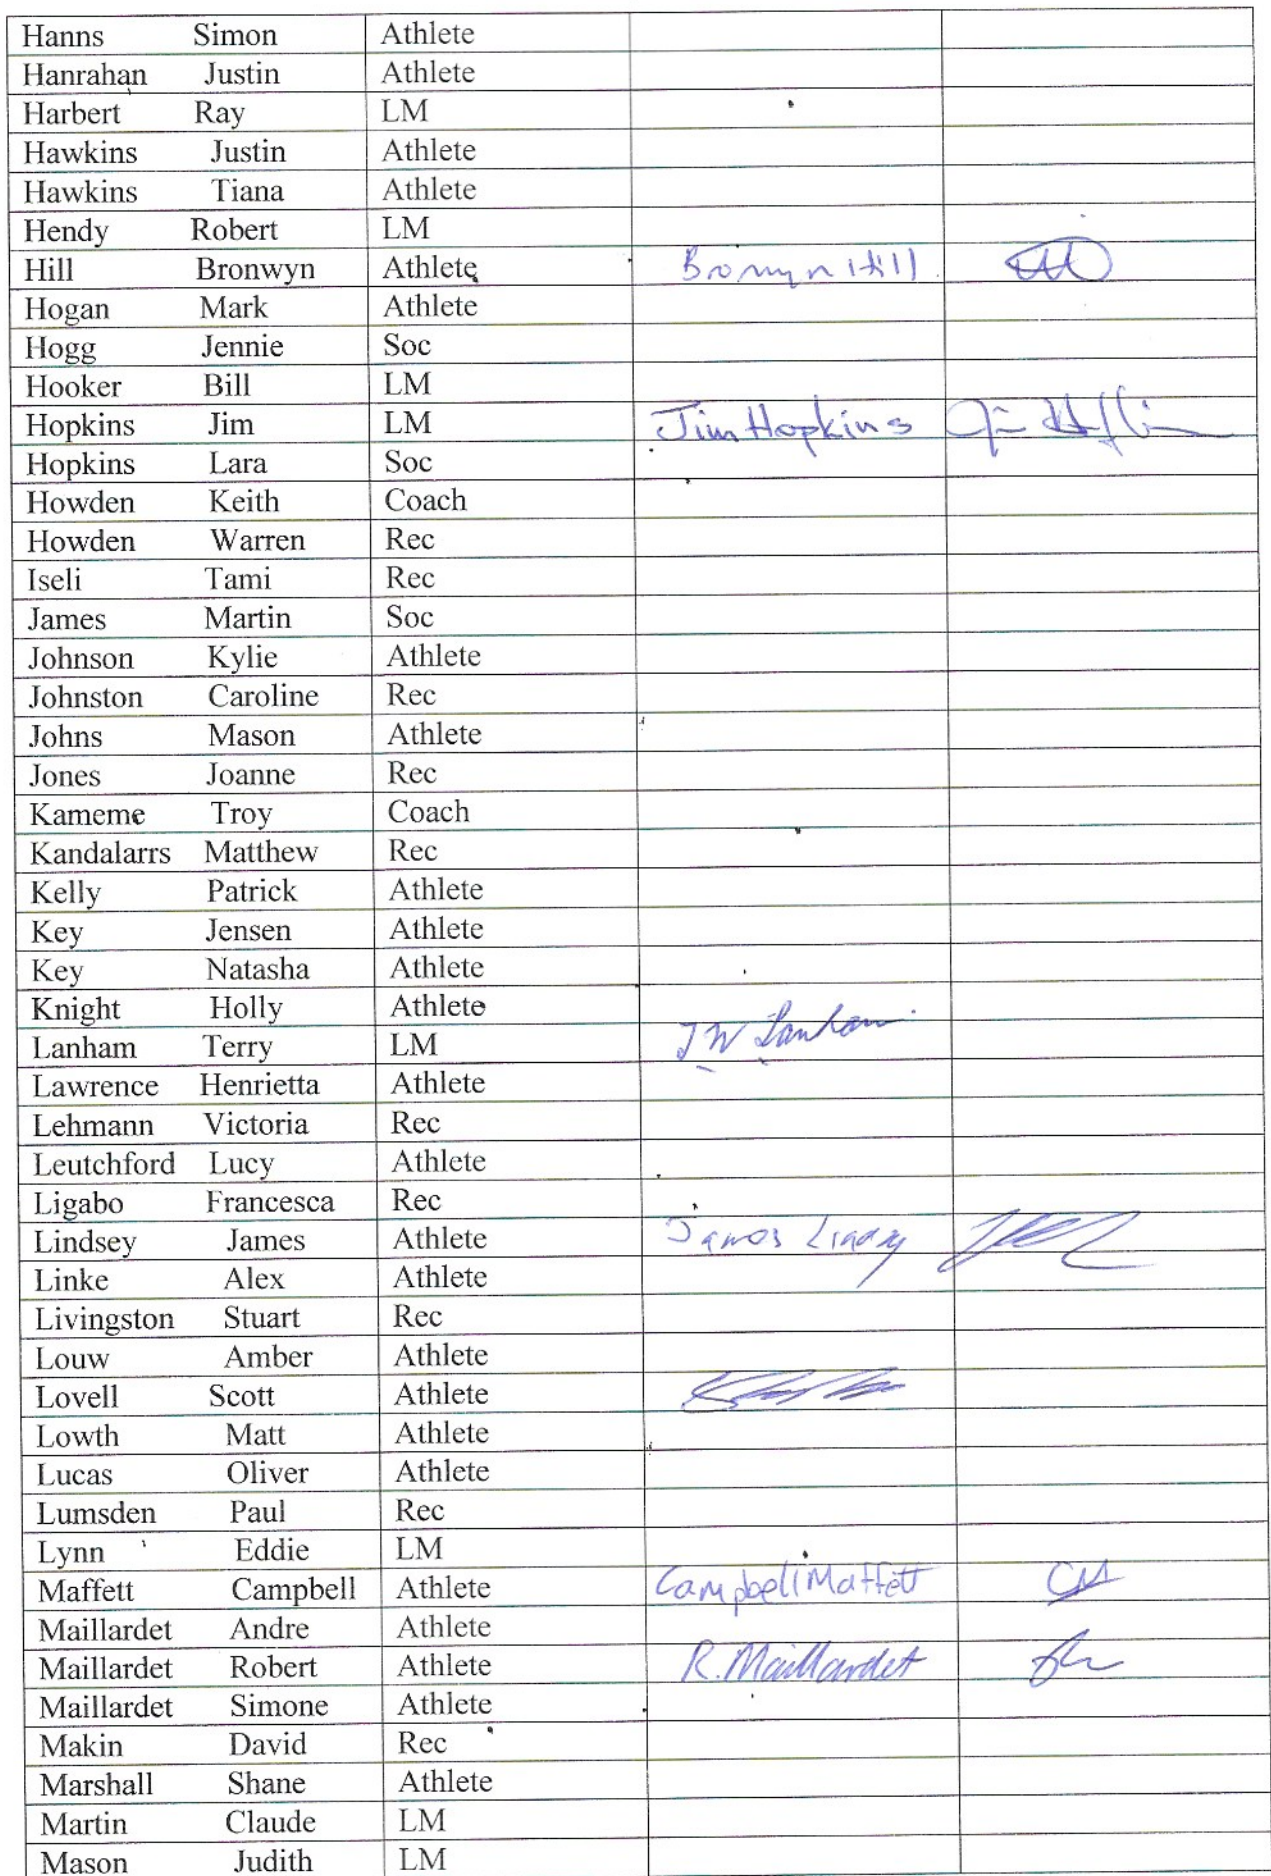 Hanns Simon Athlete
Hanrahan Justin Athlete
Harbert Ray LM
Hawkins Justin Athlete
Hawkins Tiana Athlete
Hendy Robert LM
Hill Bronwyn Athlete Bronwyn Hill
Hogan Mark Athlete
Hogg Jennie Soc
Hooker Bill LM
Hopkins Jim LM Jim Hopkins
Hopkins Lara Soc
Howden Keith Coach
Howden Warren Rec
Iseli Tami Rec
James Martin Soc
Johnson Kylie Athlete
Johnston Caroline Rec
Johns Mason Athlete
Jones Joanne Rec
Kameme Troy Coach
Kandalarrs Matthew Rec
Kelly Patrick Athlete
Key Jensen Athlete
Key Natasha Athlete
Knight Holly Athlete
Lanham Terry LM TW Lanham
Lawrence Henrietta Athlete
Lehmann Victoria Rec
Leutchford Lucy Athlete
Ligabo Francesca Rec
Lindsey James Athlete James
Linke Alex Athlete
Livingston Stuart Rec
Louw Amber Athlete
Lovell Scott Athlete
Lowth Matt Athlete
Lucas Oliver Athlete
Lumsden Paul Rec
Lynn Eddie LM
Maffett Campbell Athlete Campbell Maffett CM
Maillardet Andre Athlete
Maillardet Robert Athlete R. Maillardet
Maillardet Simone Athlete
Makin David Rec
Marshall Shane Athlete
Martin Claude LM
Mason Judith LM